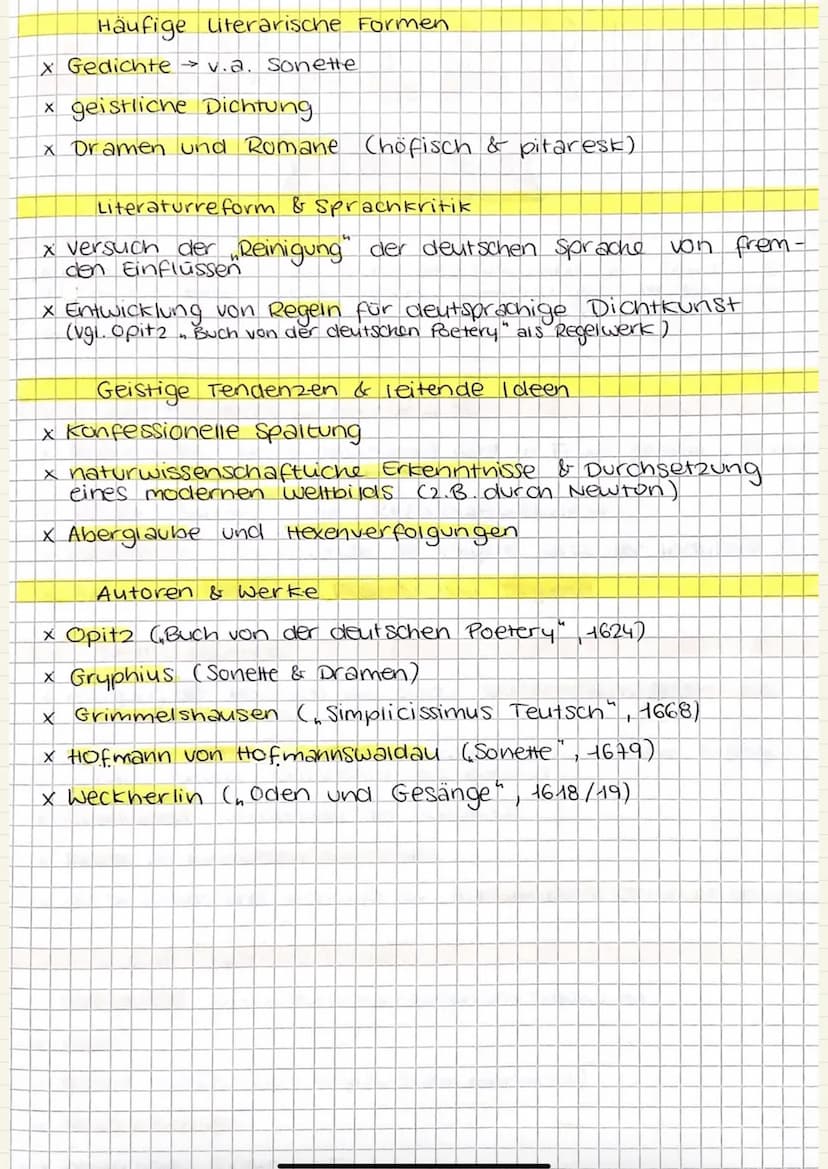 Häufige Literarische Formen
x Gedichte → v.a. Sonette
x geistliche Dichtung
x Dramen und Romane (höfisch & pitaresk)
Literaturreform & Sprachkritik
x Versuch der „Reinigung" der deutschen Sprache von frem-
den Einflüssen
x Entwicklung von Regeln für deutsprachige Dichtkunst
(vgl. Opitz „Buch von der deutschen Poetery" als Regelwerk)
Geistige Tendenzen & leitende Ideen
x Konfessionelle Spaltung
x naturwissenschaftliche Erkenntnisse & Durchsetzung
eines modernen Weltbilds (z.B. durch Newton)
x Aberglaube und Hexenverfolgungen
Autoren & Werke
x Opitz („Buch von der deutschen Poetery", 1624)
x Gryphius (Sonette & Dramen)
x Grimmelshausen („Simplicissimus Teutsch", 1668)
x Hofmann von Hofmannswaldau („Sonette", 1679)
x Weckherlin („Oden und Gesänge", 1618/19)